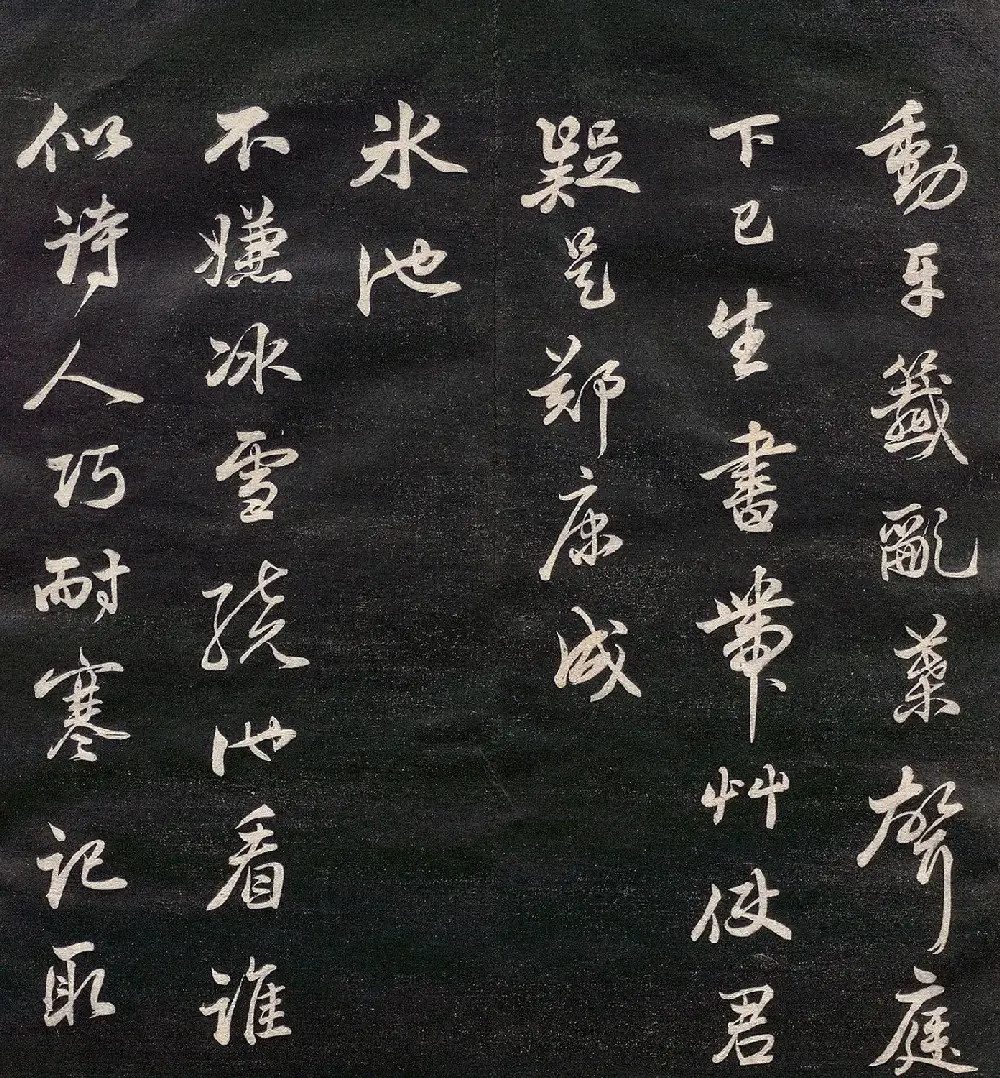 動牙籤亂葉聲庭
下已生書帶艸使君
疑是鄭康成
冰池
不嫌冰雪繞池看誰
似詩人巧耐寒記取